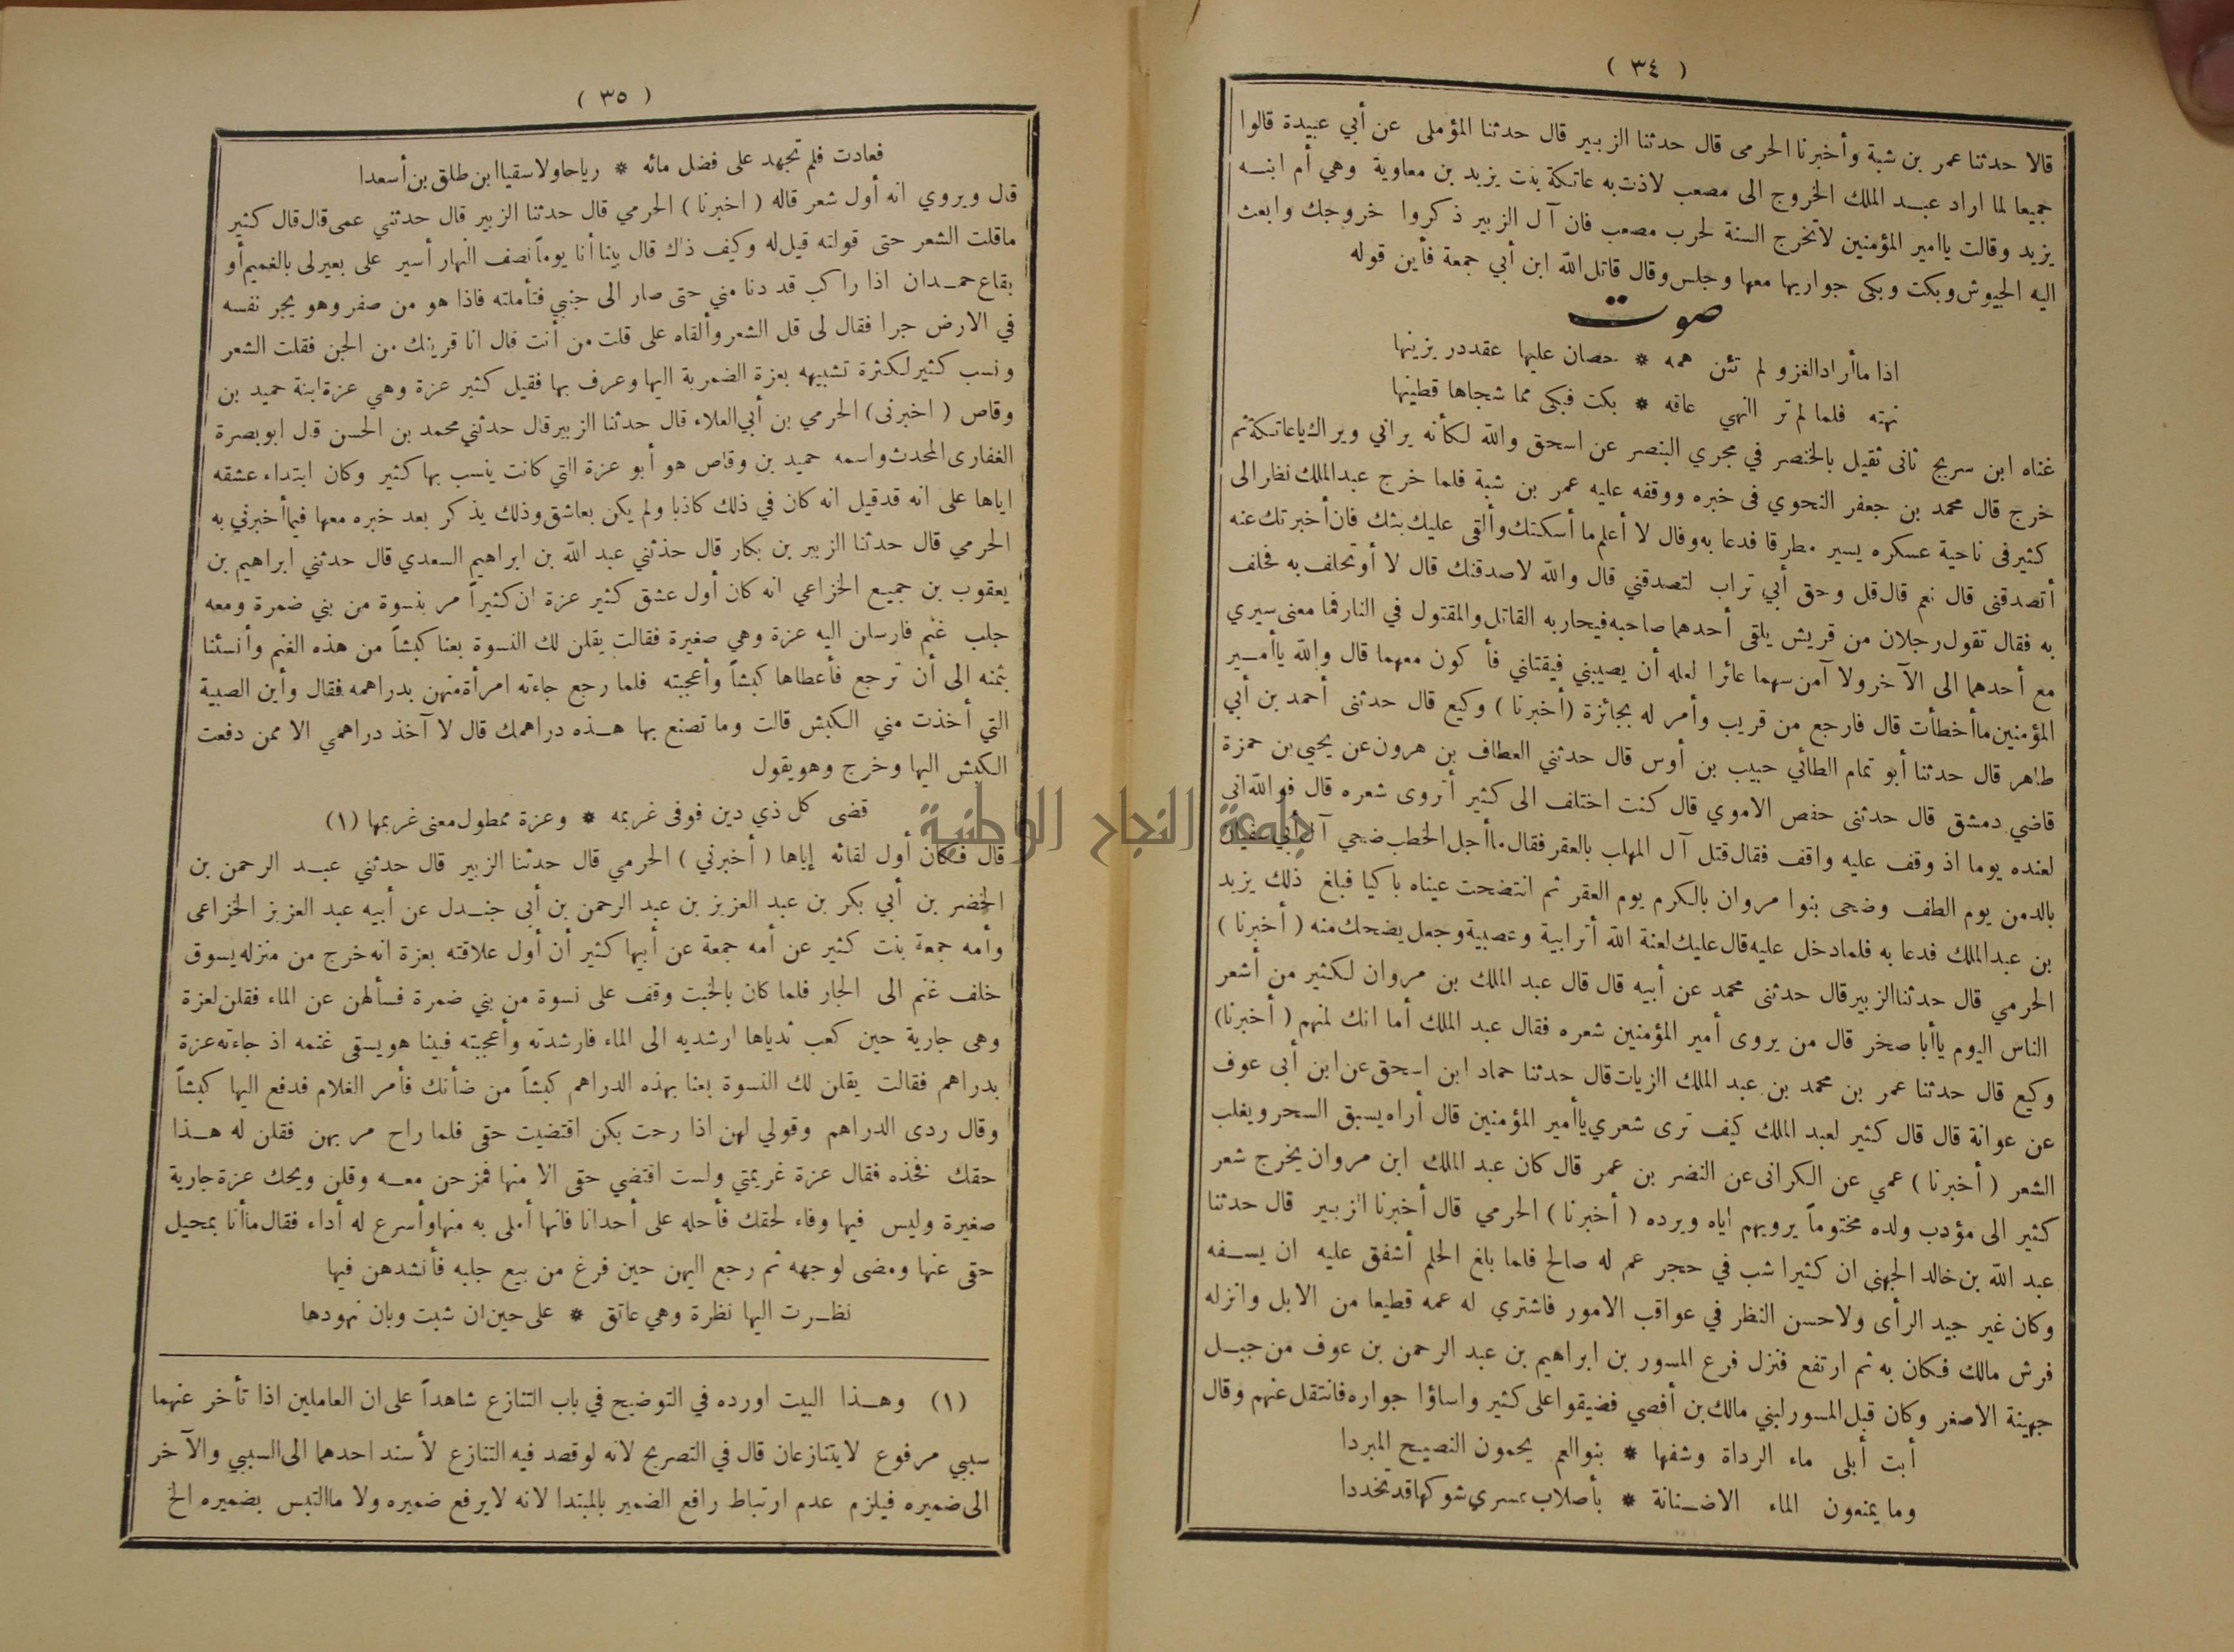 ( ٣٤ )
قالا حدثنا عمر بن شبة وأخبرنا الحرمى قال حدثنا الزبير قال حدثنا المؤملى عن أبي عبيدة قالوا
جميعا لما اراد عبـد الملك الخروج الى مصعب لاذت به عاتكة بنت يزيد بن معاوية وهي أم ابنـه
يزيد وقالت ياامير المؤمنين لاتخرج السنة لحرب مصعب فان آل الزبير ذكروا خروجك وابعث
اليه الجيوش وبكت وبكى جواريها معها وجلس وقال قاتل الله ابن أبي جمعة فأين قوله
صوت
اذا ماأراد الغزو لم تثن همه * حصان عليها عقد در يزينها
نهته فلما لم تر النهي عاقه * بكت فبكى مما شجاها قطينها
غناه ابن سريج ثانى ثقيل بالخنصر في مجري البنصر عن اسحق والله لكأنه يراني ويراك ياعاتكة ثم
خرج قال محمد بن جعفر النحوي فى خبره ووقفه عليه عمر بن شبة فلما خرج عبد الملك نظار الى
كثير فى ناحية عسكره يسير مطرقا فدعا به وقال لا أعلم ما أسكتك وألقى عليك بثك فان أخبرتك عنه
أتصدقنى قال نعم قال قل وحق أبي تراب لتصدقني قال والله لاصدقنك قال لا أو تحلف به فحلف
به فقال تقول رجلان من قريش يلقى أحدهما صاحبه فيحاربه القاتل والمقتول في النار فما معنى سيري
مع أحدهما الى الآخر ولا آمن سهما عائرا لعله أن يصيبني فيقتلني فأكون معهما قال والله ياأمـير
المؤمنين ماأخطأت قال فارجع من قريب وأمر له بجائزة (أخبرنا) وكيع قال حدثنى أحمد بن أبي
طاهر قال حدثنا أبو تمام الطائي حبيب بن أوس قال حدثني العطاف بن هرون عن يحيى بن حمزة
قاضي دمشق قال حدثنى حفص الاموي قال كنت اختلف الى كثير أتروى شعره قال فوالله انى
لعنده يوما اذ وقف عليه واقف فقال قتل آل المهلب بالعقر فقال ماأجل الخطب ضحي آل أبي سفيان
بالدمن يوم الطف وضحى بنوا مروان بالكرم يوم العقر ثم انتضحت عيناه باكيا فبلغ ذلك يزيد
بن عبد الملك فدعا به فلما دخل عليه قال عليك لعنة الله أترابية وعصبية وجعل يضحك منه ( أخبرنا )
الحرمي قال حدثنا الزبير قال حدثنى محمد عن أبيه قال قال عبد الملك بن مروان لكثير من أشعر
الناس اليوم ياأبا صخر قال من يروى أمير المؤمنين شعره فقال عبد الملك أما انك لمنهم ( أخبرنا)
وكيع قال حدثنا عمر بن محمد بن عبد الملك الزيات قال حدثنا حماد ابن اسحق عن ابن أبى عوف
عن عوانة قال قال كثير لعبد الملك كيف ترى شعري ياأمير المؤمنين قال أراه يسبق السحر ويغلب
الشعر ( أخبرنا ) عمي عن الكرانى عن النضر بن عمر قال كان عبد الملك ابن مروان يخرج شعر
كثير الى مؤدب ولده مختوماً يرويهم اياه ويرده ( أخبرنا ) الحرمي قال أخبرنا الزبير قال حدثنا
عبد الله بن خالد الجهنى ان كثيرا شب في حجر عم له صالح فلما بلغ الحلم أشفق عليه ان يسـفه
وكان غير جيد الرأى ولا حسن النظر في عواقب الامور فاشتري له عمه قطيعا من الابل وانزله
فرش مالك فكان به ثم ارتفع فنزل فرع المسور بن ابراهيم بن عبد الرحمن بن عوف من جبـل
جهينة الاصغر وكان قبل المسور لبني مالك بن أفصي فضيقوا على كثير واساؤا جواره فانتقل عنهم وقال
أبت أبلى ماء الرداة وشفها * بنو العم يحمون النصيح المبردا
وما يمنعون الماء الا ضـنانة * بأصلاب عسري شوكها قد تخددا
( ٣٥ )
فعادت فلم تجهد على فضل مائه * رياحا ولا سقيا ابن طلق بن أسعدا
قال ويروي انه أول شعر قاله ( اخبرنا ) الحرمي قال حدثنا الزبير قال حدثني عمى قال قال كثير
ماقلت الشعر حتى قولته قيل له وكيف ذاك قال بينا أنا يوماً نصف النهار أسير على بعير لى بالغميم أو
بقاع حمـدان اذا راكب قد دنا مني حتى صار الى جنبي فتأملته فاذا هو من صفر وهو يجر نفسه
في الارض جرا فقال لى قل الشعر وألقاه على قلت من أنت قال انا قرينك من الجن فقلت الشعر
ونسب كثير لكثرة تشبيهه بعزة الضمرية اليها وعرف بها فقيل كثير عزة وهي عزة ابنة حميد بن
وقاص ( اخبرنى ) الحرمي بن أبي العلاء قال حدثنا الزبير قال حدثني محمد بن الحسن قال ابو بصرة
الغفارى المحدث واسمه حميد بن وقاص هو أبو عزة التي كانت ينسب بها كثير وكان ابتداء عشقه
اياها على انه قد قيل انه كان في ذلك كاذبا ولم يكن بعاشق وذلك يذكر بعد خبره معها فيما أخبرني به
الحرمي قال حدثنا الزبير بن بكار قال حدثني عبد الله بن ابراهيم السعدي قال حدثني ابراهيم بن
يعقوب بن جميع الخزاعي انه كان أول عشق كثير عزة ان كثيراً مر بنسوة من بني ضمرة ومعه
جلب غنم فارسلن اليه عزة وهي صغيرة فقالت يقلن لك النسوة بعنا كبشاً من هذه الغنم وأنسئنا
بثمنه الى أن ترجع فأعطاها كبشاً وأعجبته فلما رجع جاءته امرأة منهن بدراهمه فقال وأين الصبية
التي أخذت مني الكبش قالت وما تصنع بها هـذه دراهمك قال لا آخذ دراهمي الا ممن دفعت
الكبش اليها وخرج وهو يقول
قضى كل ذي دين فوفى غريمه * وعزة ممطول معنى غريمها (١)
قال فكان أول لقائه إياها ( أخبرني ) الحرمي قال حدثنا الزبير قال حدثني عبـد الرحمن بن
الخضر بن أبي بكر بن عبد العزيز بن عبد الرحمن بن أبى جنـدل عن أبيه عبد العزيز الخزاعى
وأمه جمعة بنت كثير عن أمه جمعة عن أبيها كثير أن أول علاقته بعزة انه خرج من منزله يسوق
خلف غنم الى الجار فلما كان بالخبت وقف على نسوة من بني ضمرة فسألهن عن الماء فقلن لعزة
وهى جارية حين كعب ثدياها ارشديه الى الماء فارشدته وأعجبته فبينا هو يسقى غنمه اذ جاءته عزة
بدراهم فقالت يقلن لك النسوة بعنا بهذه الدراهم كبشاً من ضأنك فأمر الغلام فدفع اليها كبشاً
وقال ردى الدراهم وقولي لهن اذا رحت بكن اقتضيت حقى فلما راح مر بهن فقلن له هـذا
حقك فخذه فقال عزة غريمتي ولست اقتضي حقى الا منها فمزحن معـه وقلن ويحك عزة جارية
صغيرة وليس فيها وفاء لحقك فأحله على أحدانا فانها أملى به منها وأسرع له أداء فقال ماأنا بمحيل
حقى عنها ومضى لوجهه ثم رجع اليهن حين فرغ من بيع جلبه فأنشدهن فيها
نظـرت اليها نظرة وهي عاتق * على حين ان شبت وبان نهودها
(١) وهـذا البيت اورده في التوضيح في باب التنازع شاهداً على ان العاملين اذا تأخر عنهما
سببي مرفوع لا يتنازعان قال في التصريح لانه لو قصد فيه التنازع لأسند احدهما الى السببي والآخر
الى ضميره فيلزم عدم ارتباط رافع الضمير بالمبتدا لانه لا يرفع ضميره ولا ماالتبس بضميره الخ
جامعة النجاح الوطنية